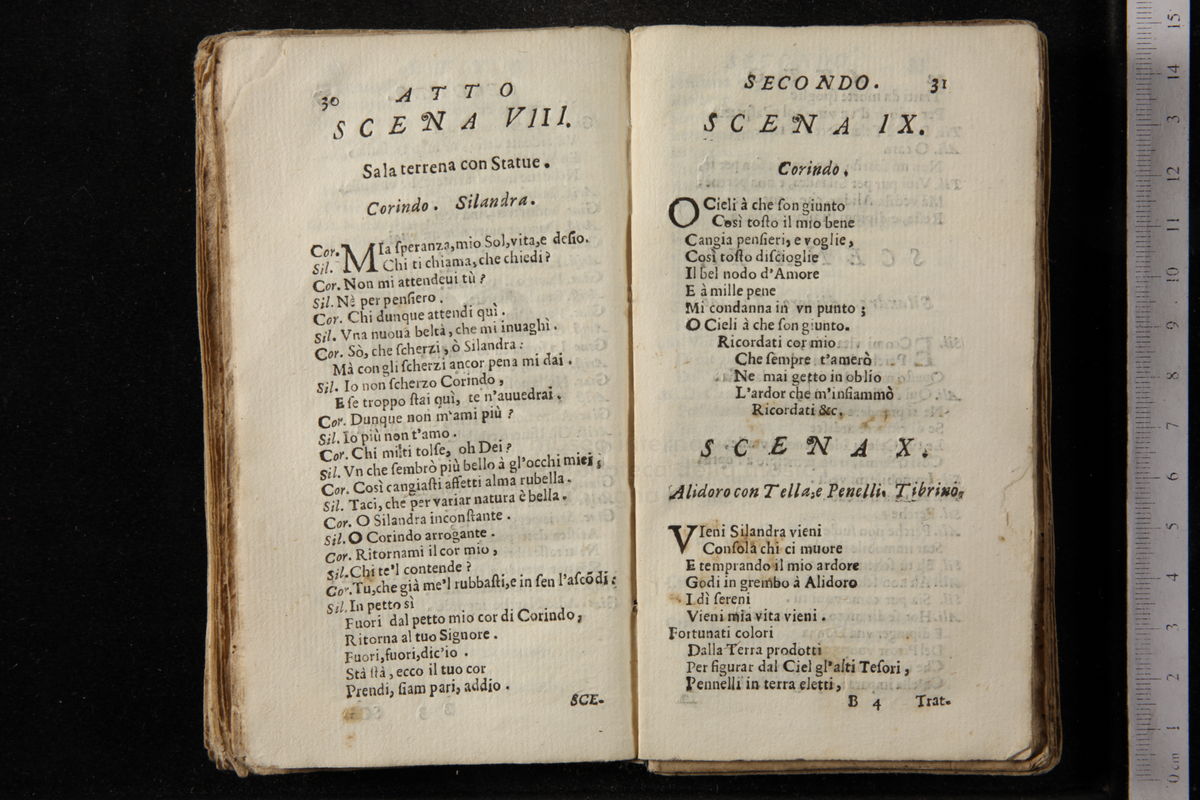 30 ATTO
SCENA VIII.
Sala terrena con Statue.
Corindo. Silandra.
Cor. MIa ſperanza, mio Sol, vita, e deſio.
Sil. Chi ti chiama, che chiedi?
Cor. Non mi attendeui tù?
Sil. Nè per penſiero.
Cor. Chi dunque attendi quì.
Sil. Vna nuoua beltà, che mi inuaghì.
Cor. Sò, che ſcherzi, ò Silandra:
Mà con gli ſcherzi ancor pena mi dai.
Sil. Io non ſcherzo Corindo,
E ſe troppo ſtai quì, te n'auuedrai.
Cor. Dunque non m'ami più?
Sil. Io più non t'amo.
Cor. Chi mi ti tolſe, oh Dei?
Sil. Vn che ſembrò più bello à gl'occhi miei;
Cor. Così cangiaſti affetti alma rubella.
Sil. Taci, che per variar natura è bella.
Cor. O Silandra inconſtante.
Sil. O Corindo arrogante.
Cor. Ritornami il cor mio,
Sil. Chi te'l contende?
Cor. Tu, che già me'l rubbaſti, e in ſen l'aſcõdi:
Sil. In petto sì
Fuori dal petto mio cor di Corindo,
Ritorna al tuo Signore.
Fuori, fuori, dic'io.
Stà ſtà, ecco il tuo cor
Prendi, ſiam pari, addio.
SCE-
SECONDO. 31
SCENA IX.
Corindo.
O Cieli à che ſon giunto
Così toſto il mio bene
Cangia penſieri, e voglie,
Così toſto diſcioglie
Il bel nodo d'Amore
E à mille pene
Mi condanna in vn punto;
O Cieli à che ſon giunto.
Ricordati cor mio
Che ſempre t'amerò
Ne mai getto in oblio
L'ardor che m'inſiammò
Ricordati &c.
SCENA X.
Alidoro con Tella, e Penelli. Tibrino.
VIeni Silandra vieni
Conſola chi ci muore
E temprando il mio ardore
Godi in grembo à Alidoro
I dì ſereni
Vieni mia vita vieni.
Fortunati colori
Dalla Terra prodotti
Per figurar dal Ciel gl'alti Teſori,
Pennelli in terra eletti,
B 4 Trat-